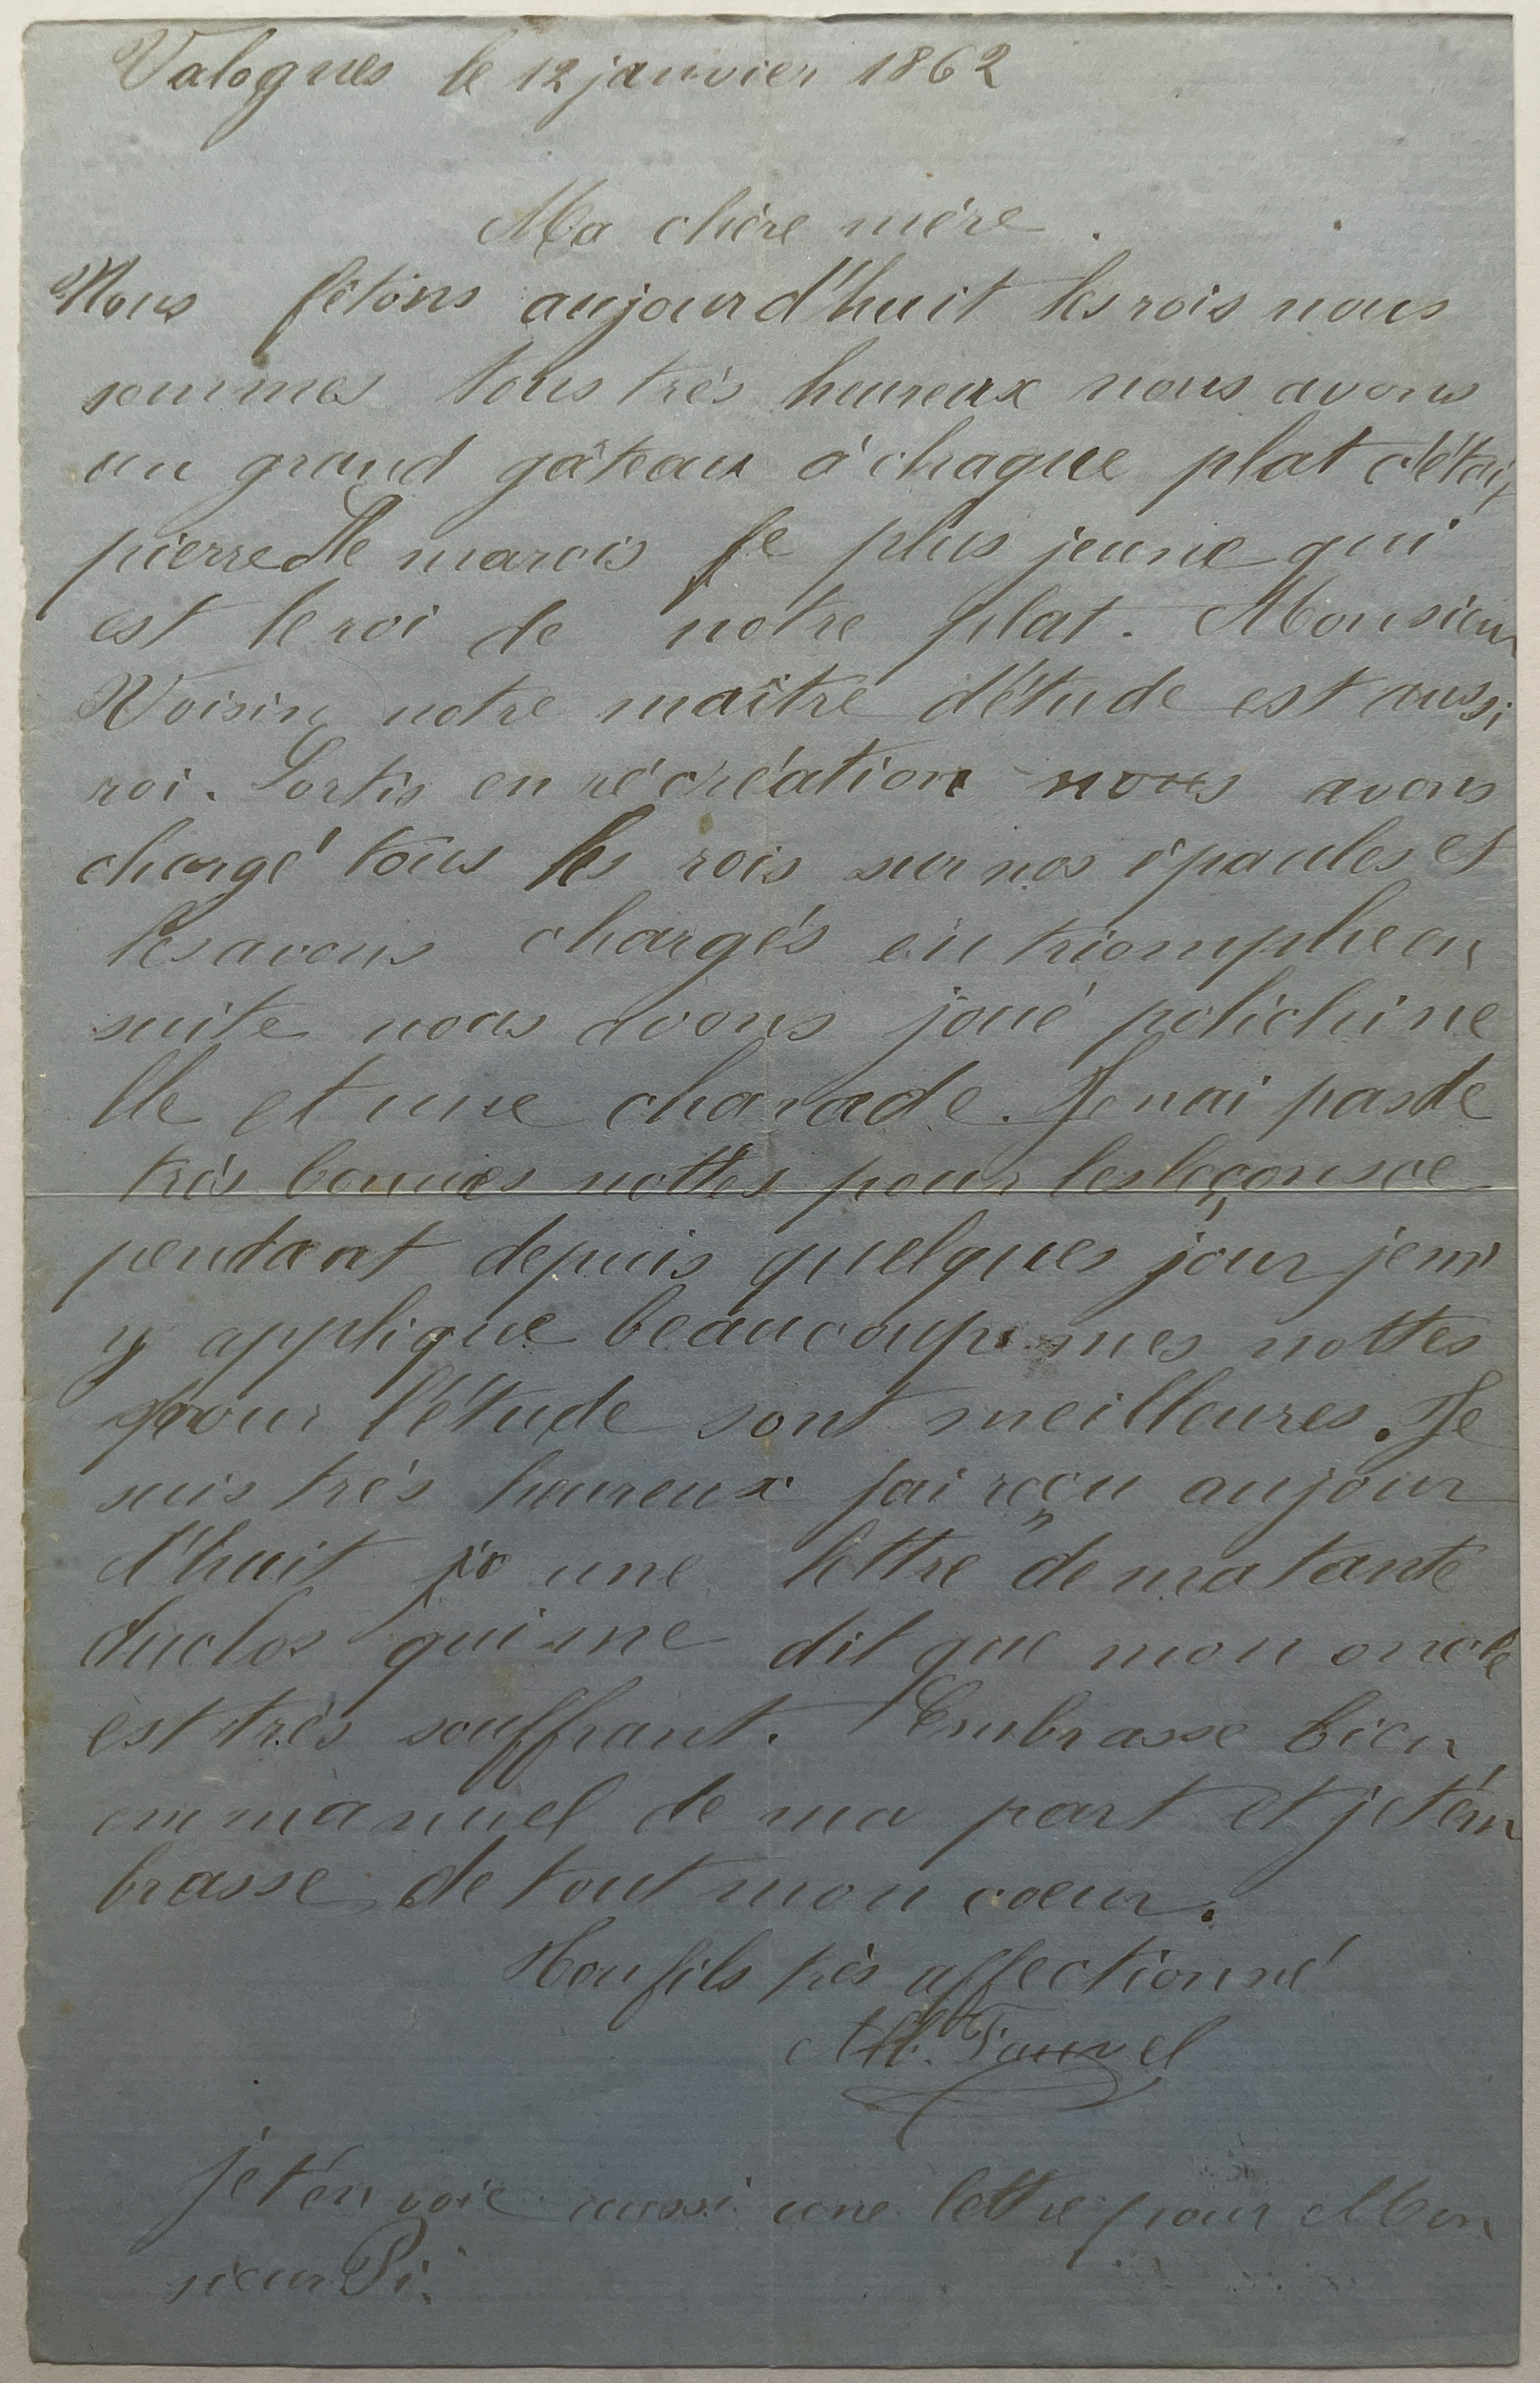 Valognes le 12 janvier 1862
Ma chère mère.
Nous fêtons aujourd'huit les rois nous
sommes tous très heureux nous avons
un grand gâteau à chaque plat c'étai
pierre le marois le plus jeune qui
est le roi de notre plat. Monsieur
Voisin notre maître d'étude est aussi
roi. Sortis en récréation nous avons
chargé tous les rois sur nos épaules et
les avons chargés en triomphe en
suite nous avons joué polichine
lle et une charade. Je nai pas de
très bonnes nottes pour les leçons ce
pendant depuis quelques jour je m'
y applique beaucoup mes nottes
pour l'étude sont meilleures. Je
suis très heureux jai reçu aujour
d'huit une lettre de ma tante
duclos qui me dit que mon oncle
est très souffrant. Embrasse bien
emmanuel de ma part et je t'em
brasse de tout mon coeur.
Ton fils très affectionné
Alb. Fauvel
je t'en voie aussi une lettre pour Mon
sieur Pi.